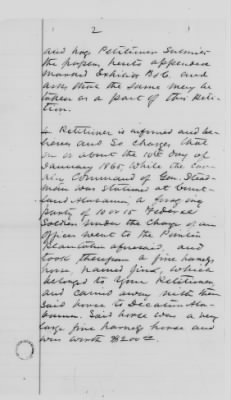 2
and hogs Petitioner submits
the papers hereto appended
marked Exhibits B & C. and
asks that the same may be
taken as a part of this Peti-
tion.
4 Petitioner is informed and be-
lieves and so charges that
on or about the 10th day of
January 1865 while the
Command of Gen. Stead-
man was stationed at
land Alabama, a foraging
party of 10 or 15 Federal
Soldiers under the charge of an
officer went to the
Plantation aforesaid, and
took therefrom a fine harness
horse, named which
belonged to Your Petitioner
and carried away with them
said horse to Decatur Ala-
bama. Said horse was a very
large fine harness horse and
was worth $200